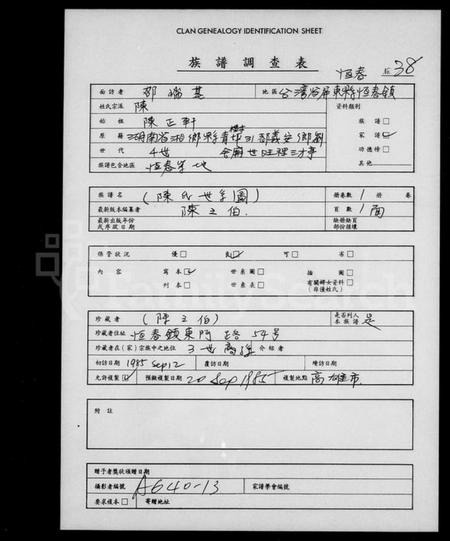 CLAN GENEALOGY IDENTIFICATION SHEET
族譜調查表
恆春 38
面訪者 邵 地區 台灣省屏東縣恆春鎮
姓氏宗派 陳 資料類別
始祖 陳正軒 族譜
原籍 湖南省湘鄉縣 家譜
世代 4世 功德榜
族譜包含地區 恆春 其他
族譜名 (陳氏世系圖) 冊卷數 1 冊 卷
最新版本編纂者 陳之伯 頁數 1 面
最新出版年份或序跋日期 缺冊缺頁部份損壞
保管狀況 優 良 可 劣
內容 寫本 世系圖 插圖
刊本 世系表 有關婦女資料(非僅姓氏)
珍藏者 (陳之伯) 是否列入本族譜 是
珍藏者住址 恆春鎮東門路54號
珍藏者在(家)宗族中之地位 3世 介紹者
初訪日期 1985 Sep 12 複訪日期 增訪日期
允許複製 預備複製日期 20 Sep 1985 複製地點 高雄市
附註
贈予者獎狀頒贈日期
攝影者編號 A640-13 家譜學會編號
要求複本 寄贈地址
FamilySearch